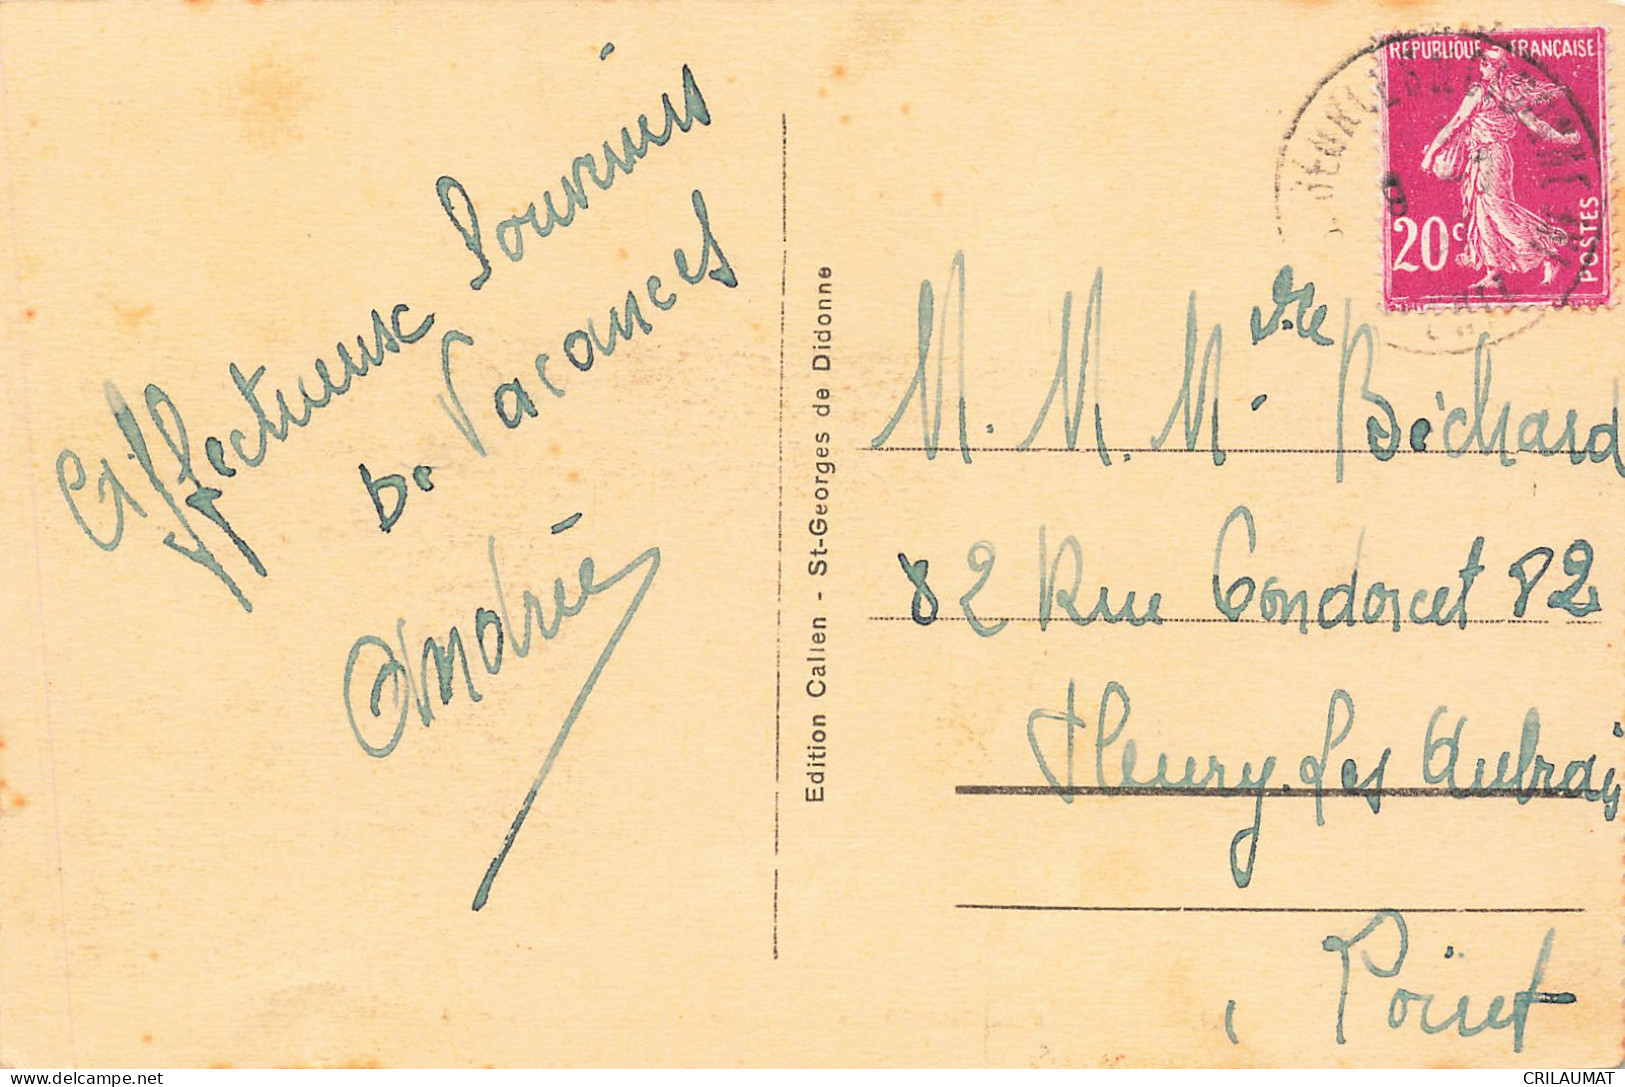 Affectueux Souvenirs
de Vacances
Andrée
Edition Callen - St-Georges de Didonne
REPUBLIQUE FRANÇAISE
20c
POSTES
M. M. Melle Béchard
82 Rue Condorcet 82
Fleury-Les Aubrais
Loiret
CRILAUMAT